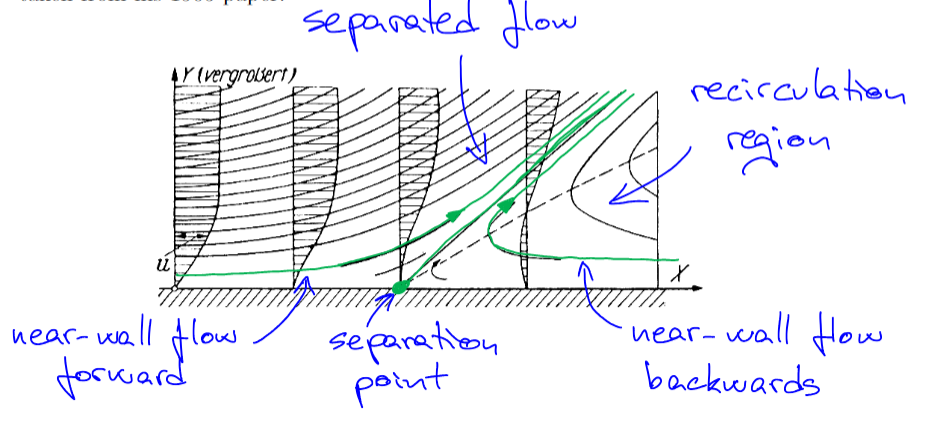 separated flow
Y (vergroßert)
recirculation
region
u
X
near-wall flow
forward
separation
point
near-wall flow
backwards